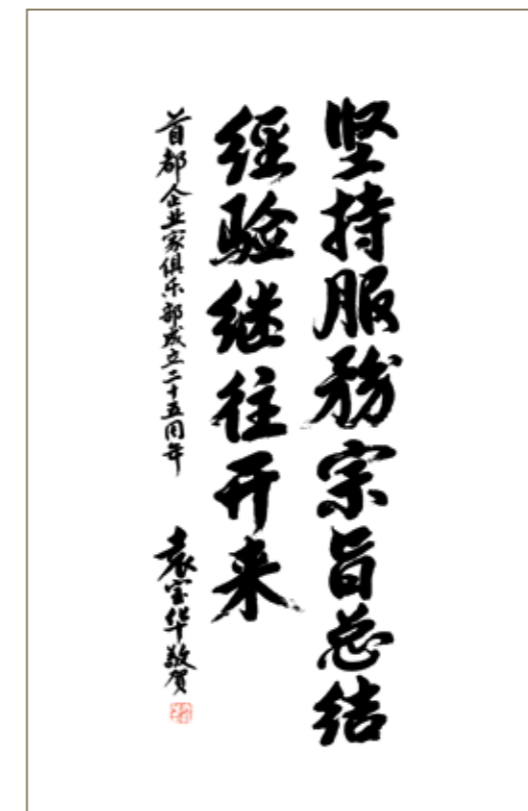 坚持服務宗旨总结
经验继往开来
首都企业家俱乐部成立二十五周年
袁宝华敬贺